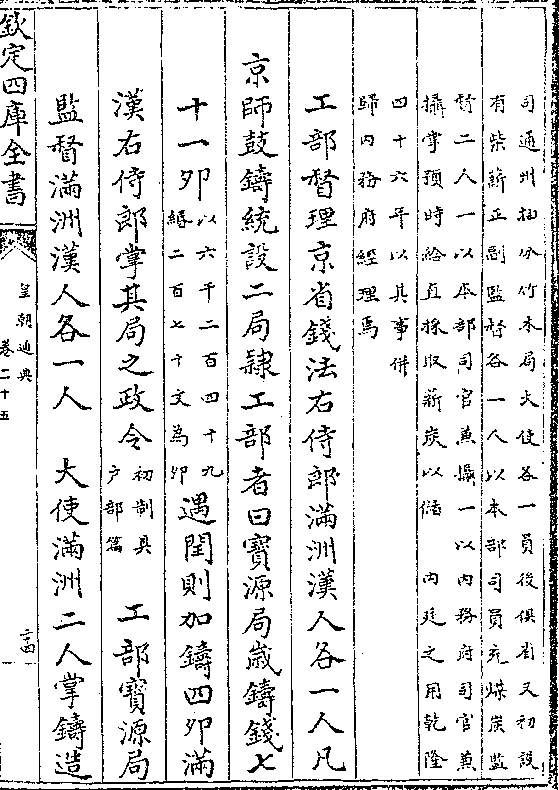 司通州抽分竹木局大使各一員後俱省又初設
有柴薪正副監督各一人以本部司員充煤炭監
督二人一以本部司官兼攝一以內務府司官兼
攝掌預時給直採取薪炭以儲　內廷之用乾隆
四十六年以其事併
歸內務府經理焉
工部督理京省錢法右侍郎滿洲漢人各一人凡
京師鼓鑄統設二局隸工部者曰寶源局歲鑄錢七
十一夘以六千二百四十九
緡二百七十文為夘遇閏則加鑄四夘滿
漢右侍郎掌其局之政令初制具
戶部篇　工部寶源局
監督滿洲漢人各一人　大使滿洲二人掌鑄造
欽定四庫全書
皇朝通典
卷二十五
二十四